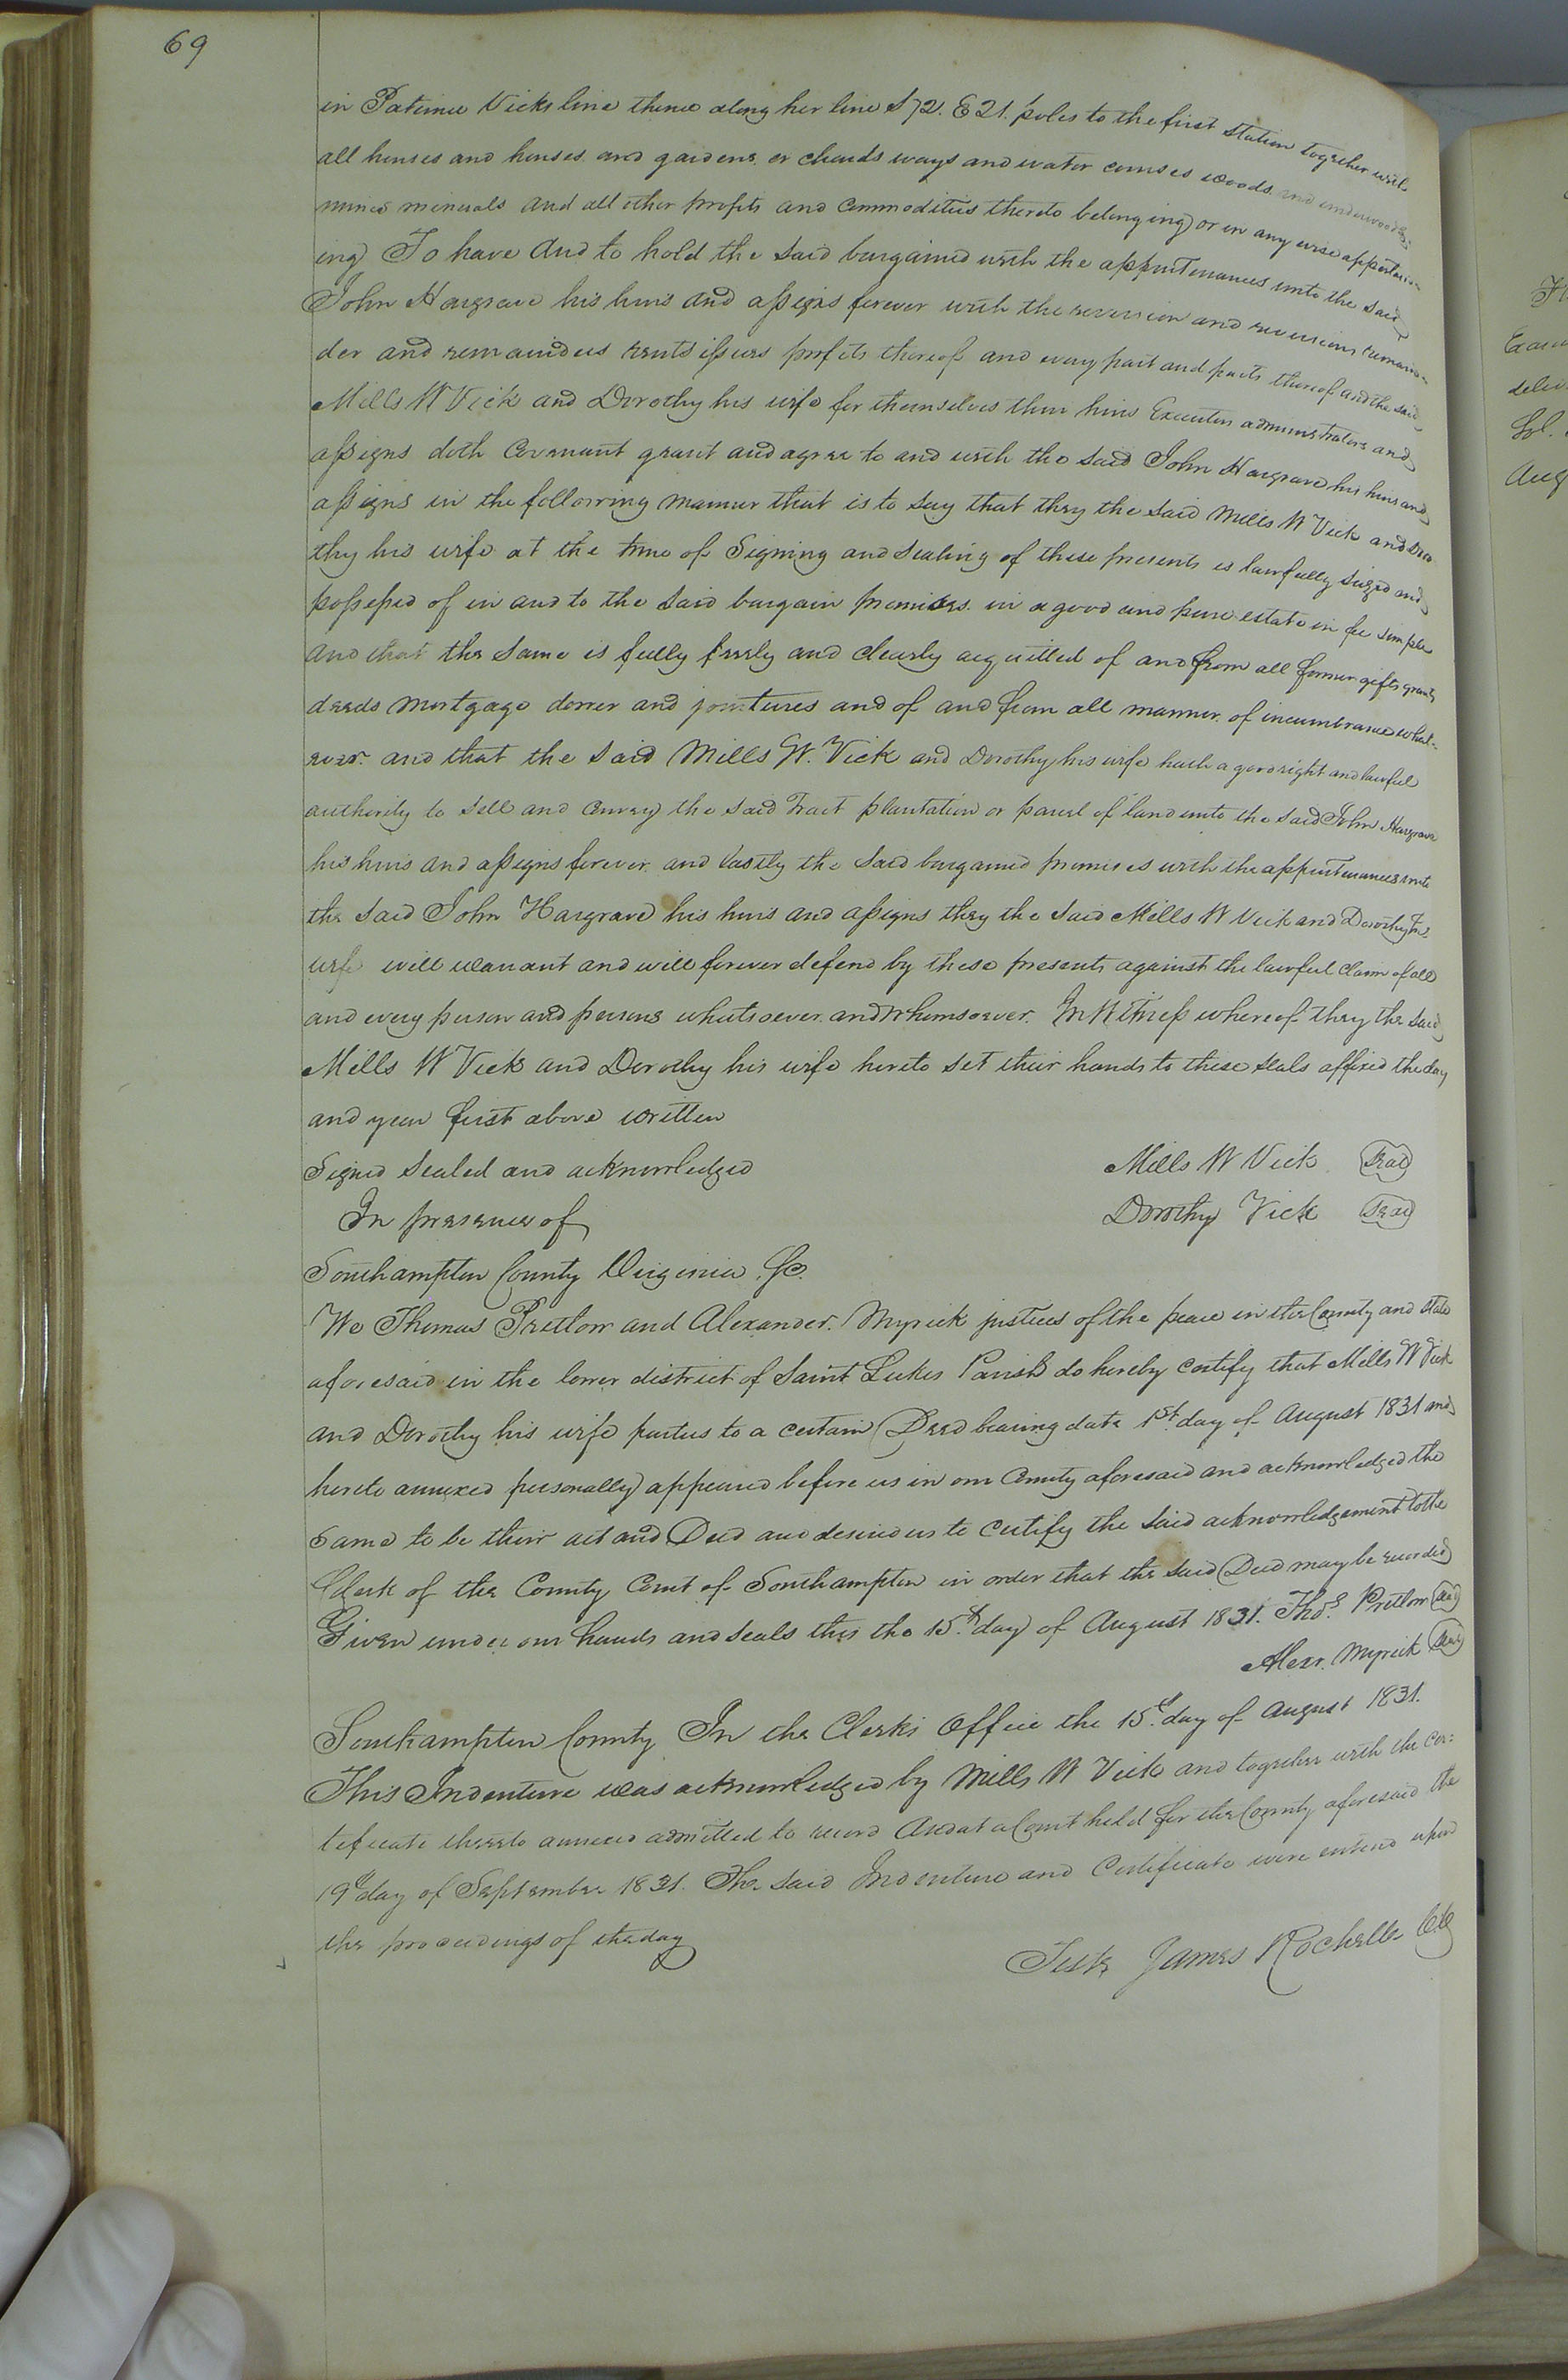 69
in Patience Vicks line thence along her line S 72. E 21. poles to the first station together with
all houses and houses and gardens or chards ways and water courses woods and underwoods
mines minerals and all other profits and commodities thereto belonging or in any wise appertain-
ing To have and to hold the said bargained with the appurtenances unto the said
John Hargrave his heirs and assigns forever with the reversion and reversions remain-
der and remainders rents issues profits thereof and every part and parts thereof and the said
Mills W Vick and Dorothy his wife for themselves their heirs Executors administrators and
assigns doth Covenant grant and agree to and with the said John Hargrave his heirs and
assigns in the following manner that is to say that they the said Mills W Vick and Doro
thy his wife at the time of Signing and Sealing of these presents is lawfully seized and
possessed of in and to the said bargain premises in a good and pure estate in fee simple
and that the same is fully freely and clearly acquitted of and from all former gifts grants
deeds mortgage dower and jointures and of and from all manner of incumbrance what-
ever and that the said Mills W. Vick and Dorothy his wife hath a good right and lawful
authority to sell and convey the said Tract plantation or parcel of land unto the said John Hargrave
his heirs and assigns forever and Lastly the said bargained premises with the appurtenances unto
the said John Hargrave his heirs and assigns they the said Mills W Vick and Dorothy his
wife will warrant and will forever defend by these presents against the lawful claim of all
and every person and persons whatsoever and Whomsoever. In Witness whereof they the said
Mills W Vick and Dorothy his wife hereto set their hands to these seals affixed the day
and year first above written
Signed Sealed and acknowledged Mills W Vick Seal
In presence of Dorothy Vick Seal
Southampton County Virginia Sc.
We Thomas Pretlow and Alexander. Myrick justices of the peace in the County and State
aforesaid in the lower district of Saint Lukes Parish do hereby certify that Mills W Vick
and Dorothy his wife parties to a certain Deed bearing date 1st day of August 1831 and
hereto annexed personally appeared before us in our County aforesaid and acknowledged the
same to be their act and Deed and desired us to certify the said acknowledgement to the
Clerk of the County Court of Southampton in order that the said Deed may be recorded
Given under our hands and seals this the 15th day of August 1831. Thos. Pretlow Seal
Alexr. Myrick Seal
Southampton County In the Clerks Office the 15th day of August 1831.
This Indenture was acknowledged by Mills W Vick and together with the cer=
tificate thereto annexed admitted to record And at a Court held for the County aforesaid the
19th day of September 1831. The said Indenture and Certificate were entered upon
the proceedings of the day
Teste James Rochelle CC